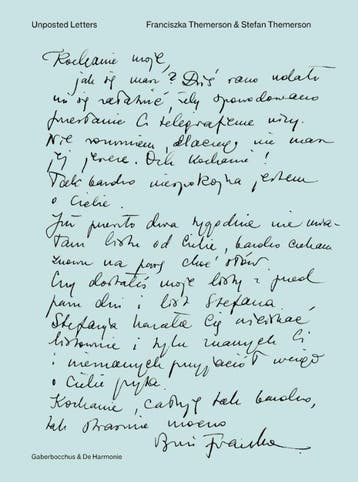 Unposted Letters
Franciszka Themerson & Stefan Themerson
Kochanie moje,
jak się masz? Dziś rano udało
mi się załatwić, żeby spowodowano
przesłanie Ci telegraficznie wizy.
Nie rozumiem, dlaczego nie masz
jej jeszcze. Och Kochanie!
Tak bardzo niespokojna jestem
o Ciebie.
Już prawie dwa tygodnie nie mia-
łam listu od Ciebie, bardzo czekam
znowu na parę choć słów.
Czy dostałeś moje listy z przed
paru dni i list Stefana
Stefania kazała Cię uściskać
listownie i tylu znanych Ci
i nieznanych przyjaciół wciąż
o Ciebie pyta.
Kochanie, całuję tak bardzo,
tak strasznie mocno
Franka
Gaberbocchus & De Harmonie